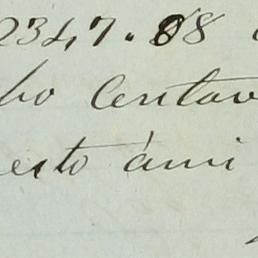 2347.08
ho Centav
esto ámi